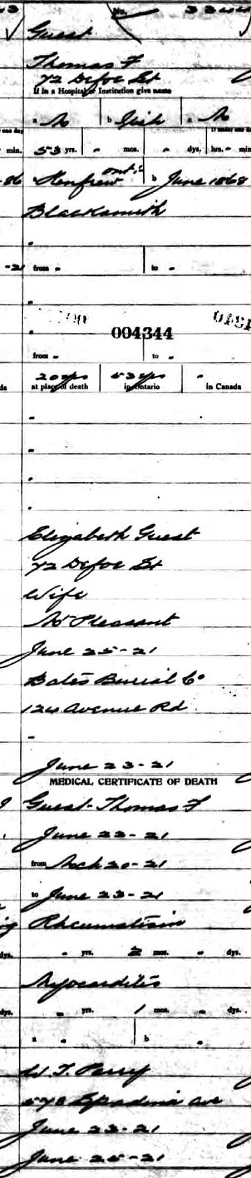 No.
Guest
Thomas F
72 Defoe St
If in a Hospital or Institution give name
a M b Irish c M
53 yrs. - mos. - dys. hrs. - min.
Renfrew Ont. b June 1868
Blacksmith
-
from - to -
-
004344
from - to -
20 yrs 53 yrs -
at place of death in Ontario in Canada
-
-
-
-
Elizabeth Guest
72 Defoe St
Wife
Mt Pleasant
June 25-21
Bates Burial Co
124 Avenue Rd
-
June 23-21
MEDICAL CERTIFICATE OF DEATH
Guest-Thomas F
June 22-21
from Mch 20-21
to June 23-21
Rheumatism
- yrs. 2 mos. - dys.
Myocarditis
- yrs. 1 mos. - dys.
a - b -
W. T. Parry
578 Spadina Ave
June 23-21
June 25-21